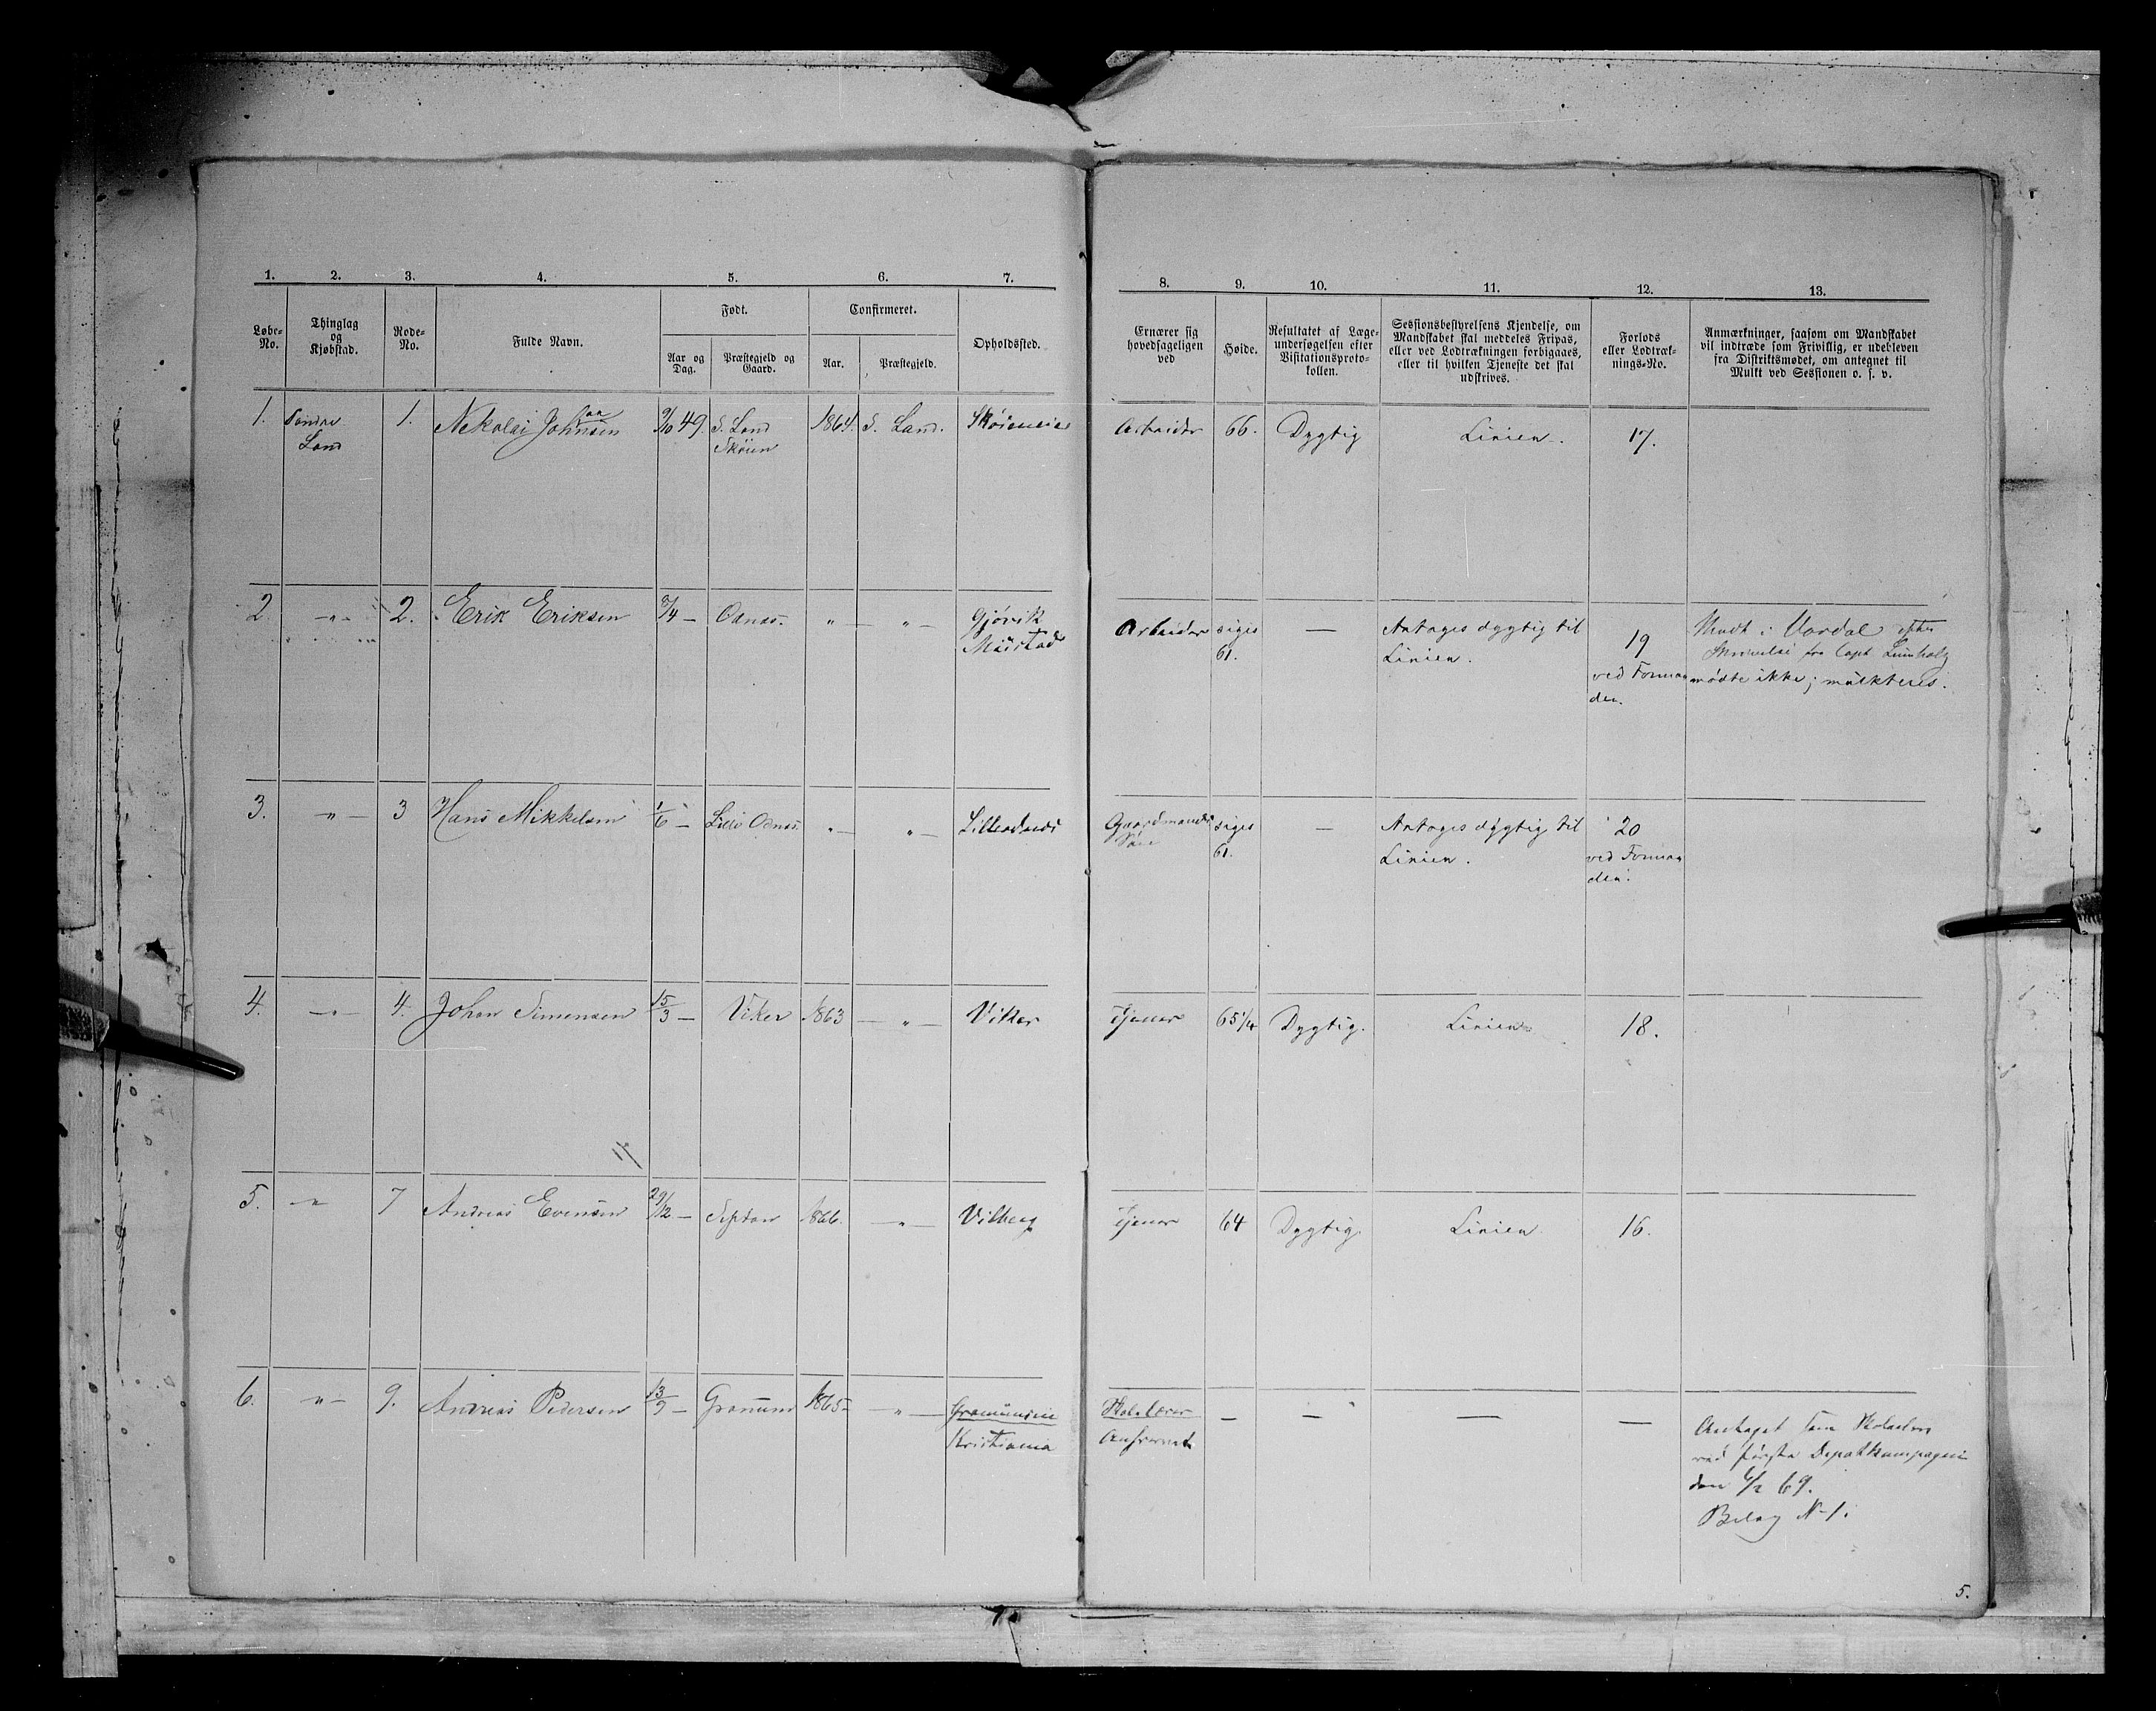 1. 2. 3. 4. 5. 6. 7.
Løbe-No. Thinglag og Kjøbstad. Rode-No. Fulde Navn. Født. Confirmeret. Opholdssted.
Aar og Dag. Præstegjeld og Gaard. Aar. Præstegjeld.
1. Søndre Land 1. Nikolai Johnsen 9/10 49. S. Land Skøien 1864. S. Land. Skøieneie
2 —"— 2. Erik Eriksen 8/4 — Odnæs. " — — " — Gjøvik Mustad
3. —"— 3 Hans Mikkelsen 1/6 — Lille Odnæs. " — " — Lilleodnæs
4. —"— 4. Johan Simensen 15/3 — Viker 1863 — " — Viker
5. —"— 7 Andreas Evensen 29/12 — 1866. — " — Vilberg
6. —"— 9. Andreas Pedersen 13/9 — Granum 1865 — " — Kristiania
8. 9. 10. 11. 12. 13.
Ernærer sig hovedsageligen ved
Høide.
Resultatet af Læge-undersøgelsen efter Visitationsproto-kollen.
Sessionsbestyrelsens Kjendelse, om Mandskabet skal meddeles Fripas, eller ved Lodtrækningen forbigaaes, eller til hvilken Tjeneste det skal udskrives.
Forlods eller Lodtræk-nings-No.
Anmærkninger, saasom om Mandskabet vil indtræde som Frivillig, er udebleven fra Distriktsmødet, om antegnet til Mulkt ved Sessionen o. s. v.
Arbeider 66. Dygtig Linien. 17.
Arbeider siges 61. — Antages dygtig til Linien. 19 ved Formanden. Mødt i Vardal efter fra Capt
mødte ikke; mulkteres.
Gaardmands Søn siges 61. — Antages dygtig til Linien. 20 ved Formanden.
Tjener 65 1/4 Dygtig. Linien 18.
Tjener 64 Dygtig. Linien 16.
Skolelærer — — — —
Antaget som Skoleelev
ved første Depotkompagni
den 69.
Bilag N 1.
5.